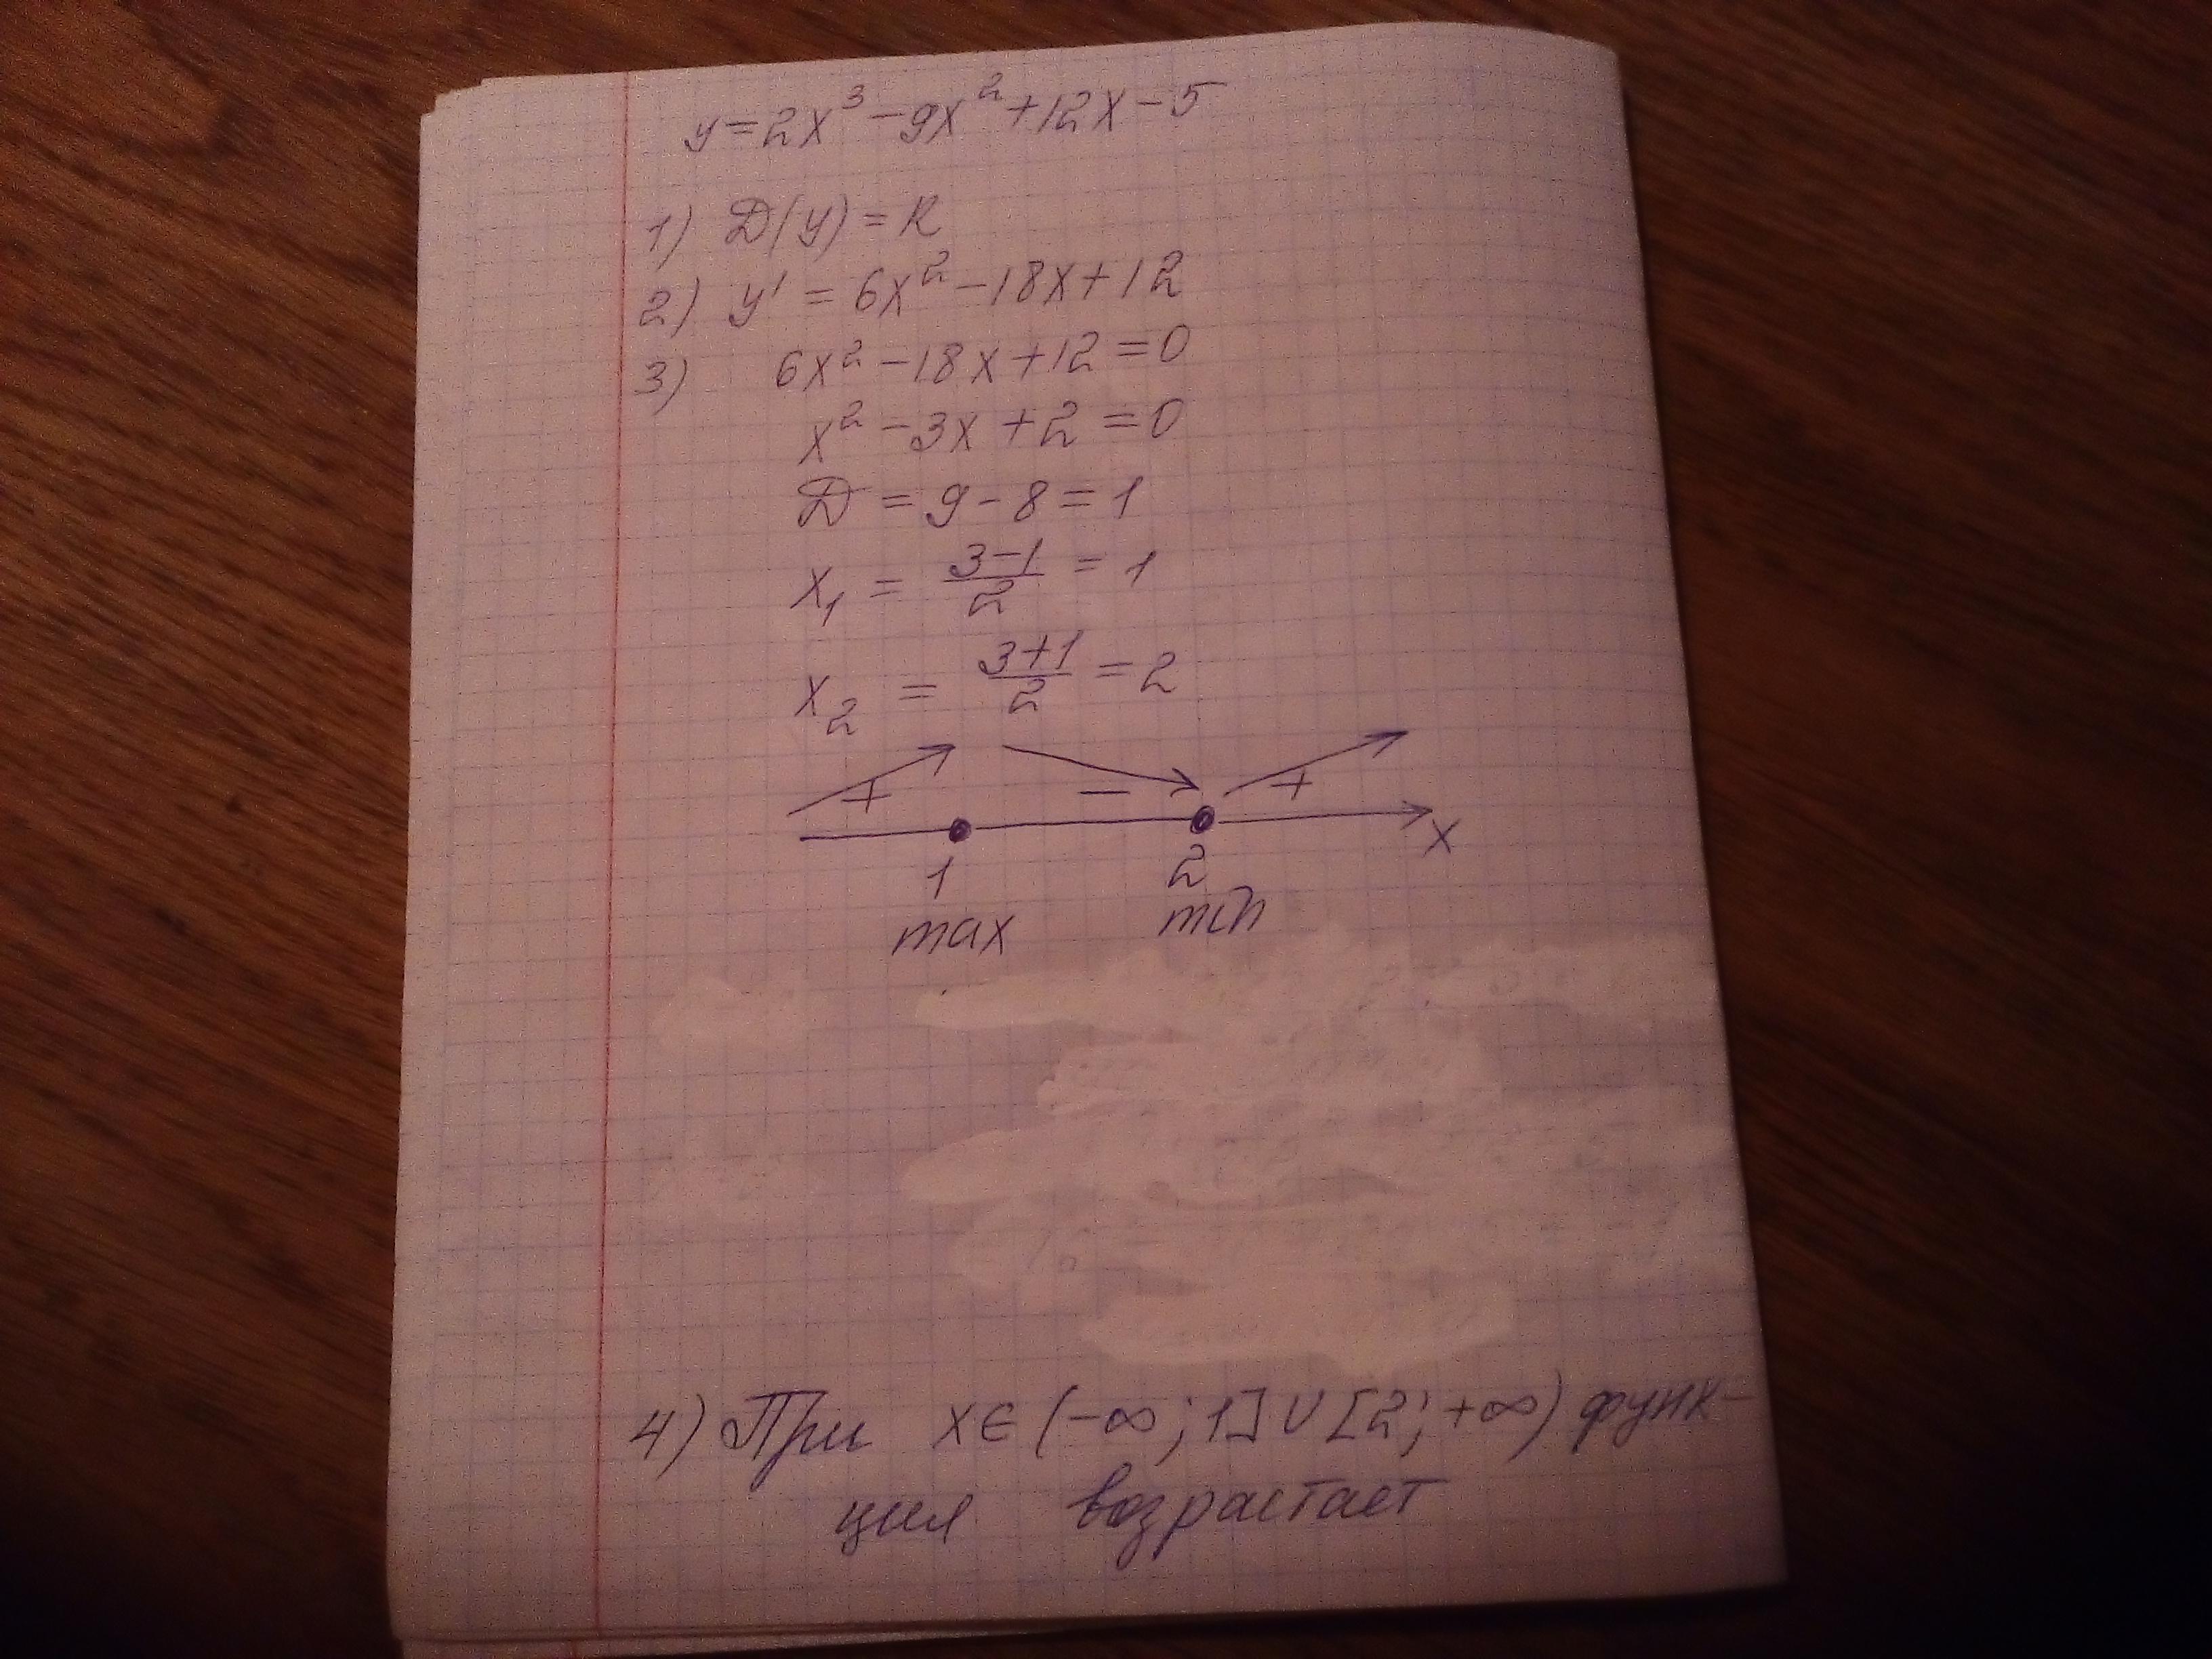 y=2x³-9x²+12x-5
1) D(y)=R
2) y' = 6x²-18x+12
3) 6x²-18x+12=0
x²-3x+2=0
D = 9-8=1
x₁ = (3-1)/2 = 1
x₂ = (3+1)/2 = 2
+ - +
1 2 x
max min
4) При x∈(-∞;1]∪[2;+∞) функ-
ция возрастает